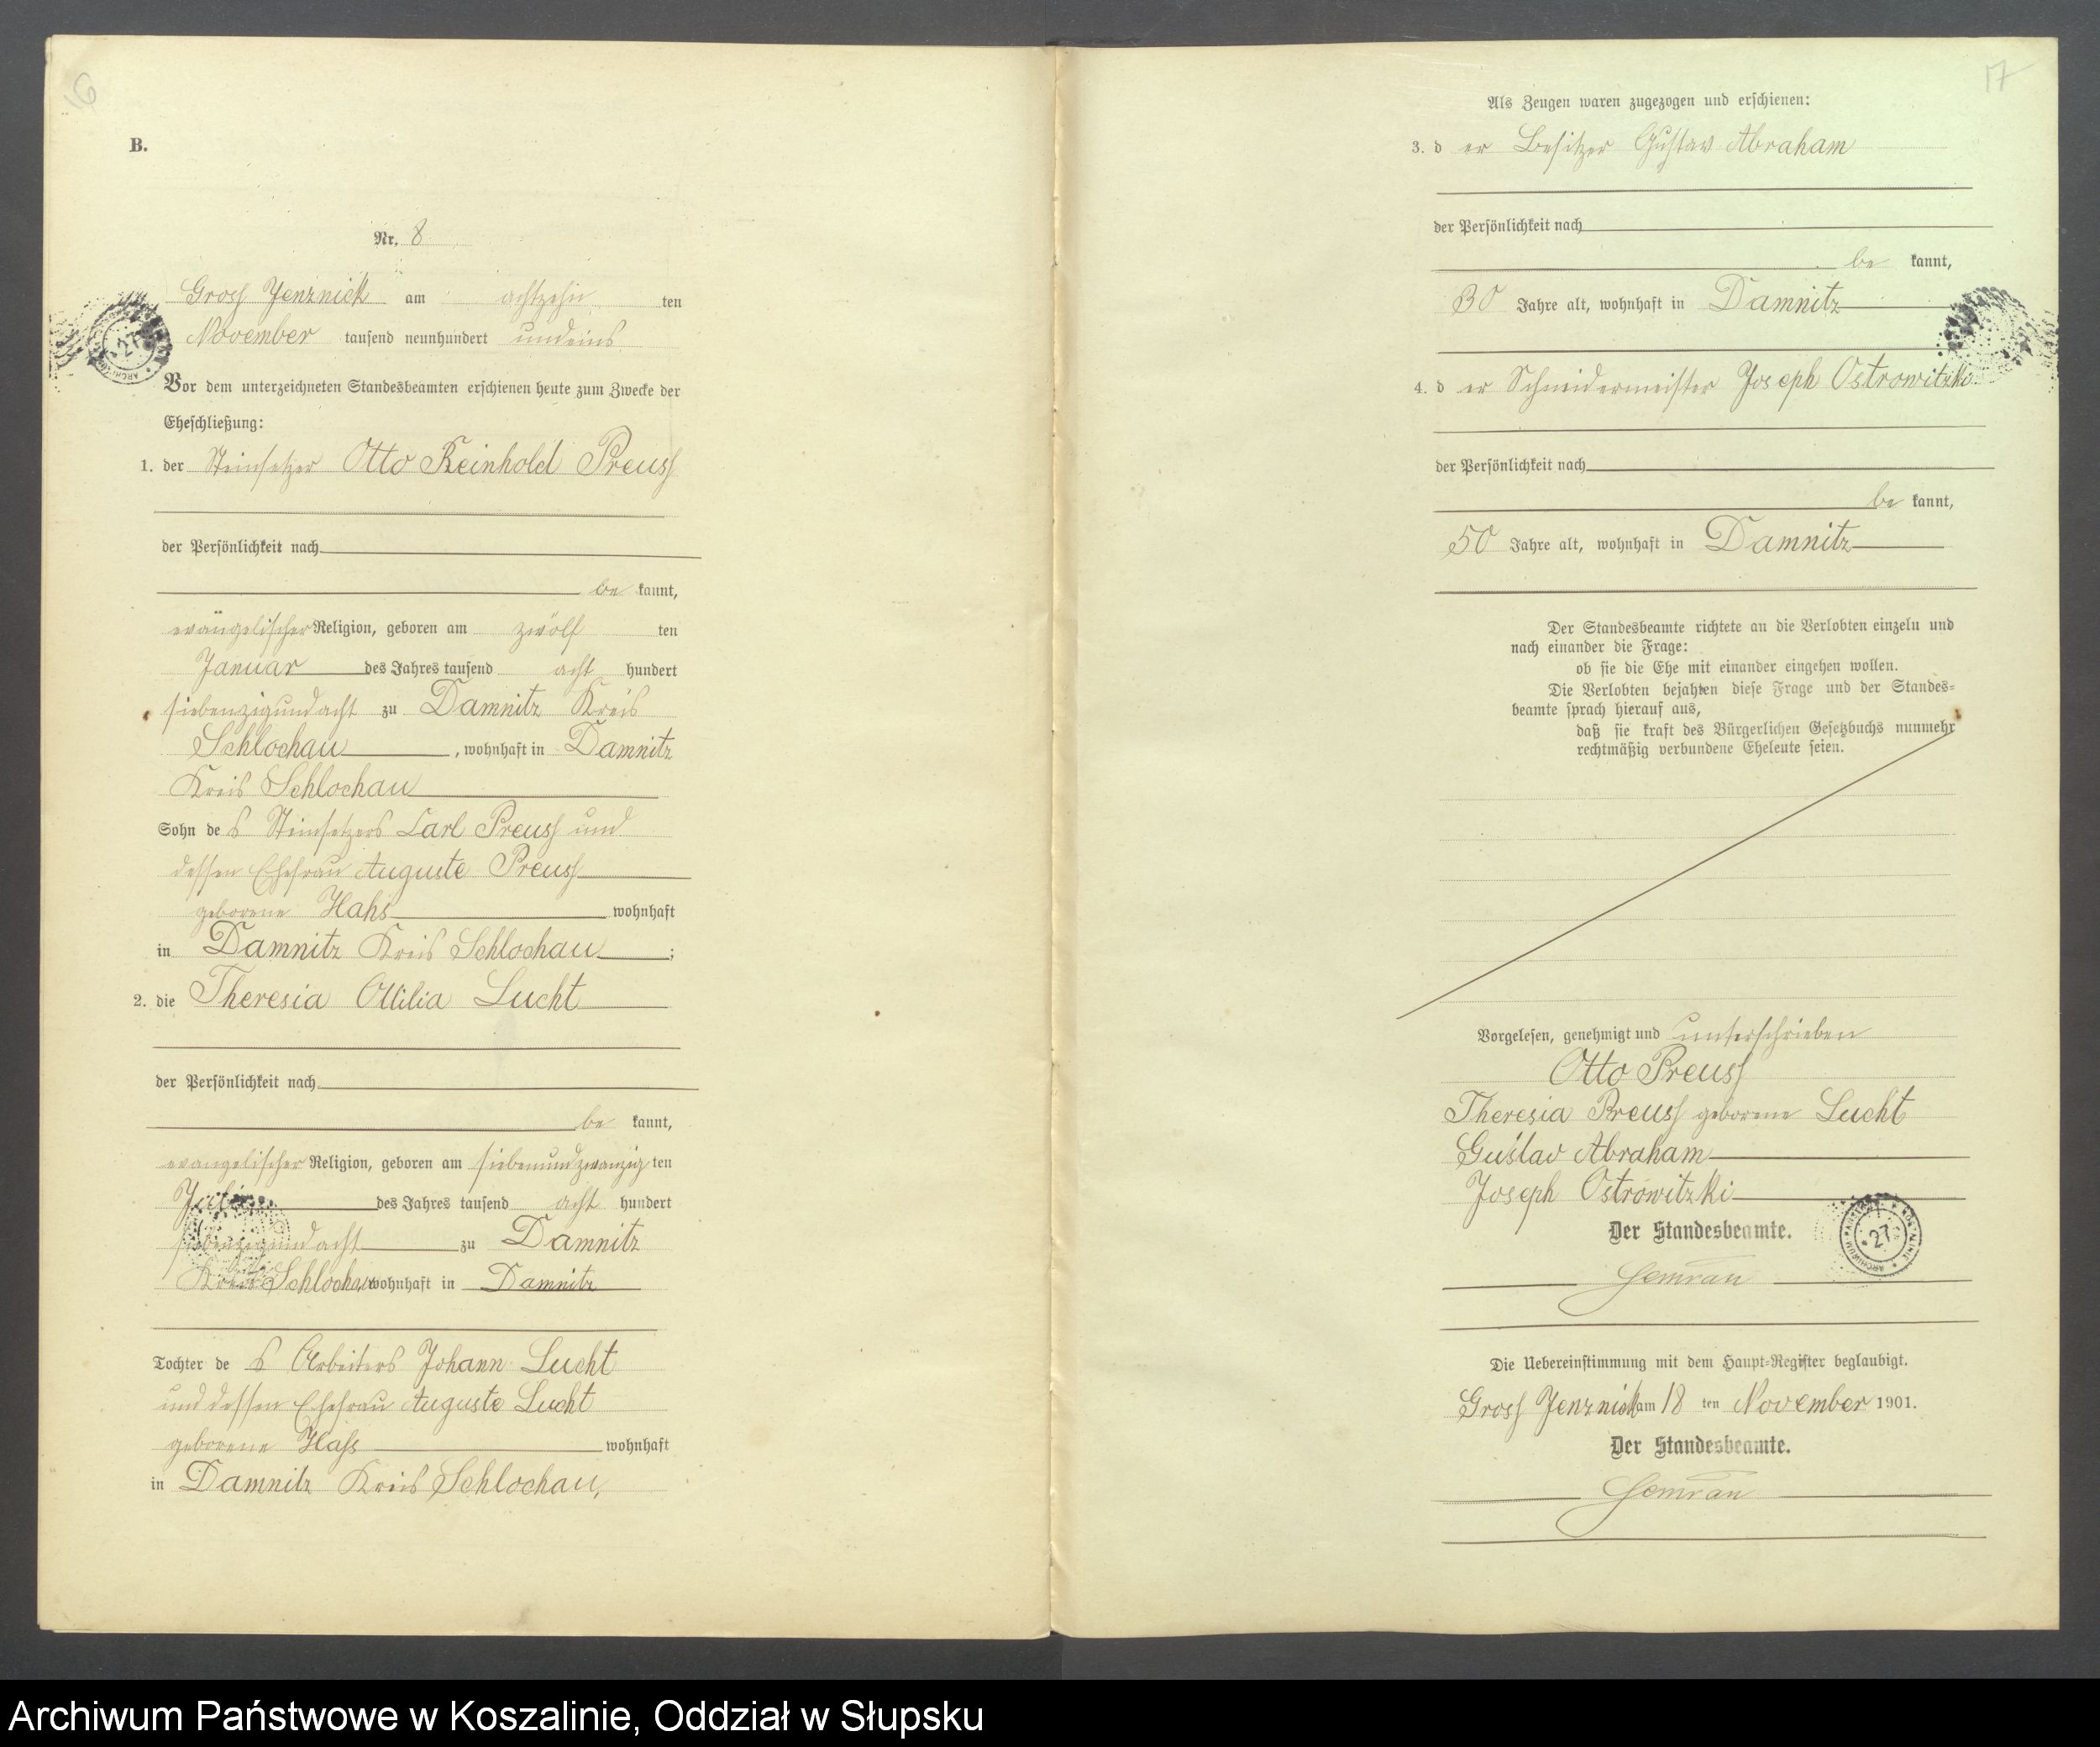 6
B.
Nr. 8
Gross Jenznick am achtzehn ten
November tausend neunhundert undeins
Vor dem unterzeichneten Standesbeamten erschienen heute zum Zwecke der
Eheschließung:
1. der Steinsetzer Otto Reinhold Preuss
der Persönlichkeit nach
be kannt,
evangelischer Religion, geboren am zwölf ten
Januar des Jahres tausend acht hundert
siebenzigundacht zu Damnitz Kreis
Schlochau, wohnhaft in Damnitz
Kreis Schlochau
Sohn des Steinsetzers Carl Preuss und
dessen Ehefrau Auguste Preuss
geborene Hahs wohnhaft
in Damnitz Kreis Schlochau;
2. die Theresia Ottilia Lucht
der Persönlichkeit nach
be kannt,
evangelischer Religion, geboren am siebenundzwanzig ten
des Jahres tausend acht hundert
siebenzigundacht zu Damnitz
Kreis Schlochau wohnhaft in Damnitz
Tochter des Arbeiters Johann Lucht
und dessen Ehefrau Auguste Lucht
geborene Hass wohnhaft
in Damnitz Kreis Schlochau,
17
Als Zeugen waren zugezogen und erschienen:
3. der Besitzer Gustav Abraham
der Persönlichkeit nach
be kannt,
30 Jahre alt, wohnhaft in Damnitz
4. der Schneidermeister Joseph Ostrowitzki
der Persönlichkeit nach
be kannt,
50 Jahre alt, wohnhaft in Damnitz
Der Standesbeamte richtete an die Verlobten einzeln und
nach einander die Frage:
ob sie die Ehe mit einander eingehen wollen.
Die Verlobten bejahten diese Frage und der Standes-
beamte sprach hierauf aus,
daß sie kraft des Bürgerlichen Gesetzbuchs nunmehr
rechtmäßig verbundene Eheleute seien.
Vorgelesen, genehmigt und unterschrieben
Otto Preuss
Theresia Preuss geborene Lucht
Gustav Abraham
Joseph Ostrowitzki
Der Standesbeamte.
Semrau
27
Die Uebereinstimmung mit dem Haupt-Register beglaubigt.
Gross Jenznick am 18 ten November 1901.
Der Standesbeamte.
Semrau
Archiwum Państwowe w Koszalinie, Oddział w Słupsku